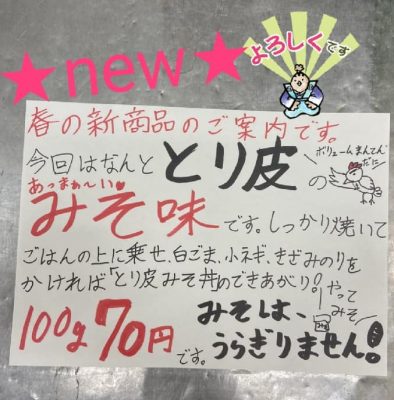 ★new★
よろしくです
春の新商品のご案内です。
今回はなんと とり皮の
ボリュームまんてん
だに
あっまぁ~い
みそ味です。しっかり焼いて
ごはんの上に乗せ、白ごま、小ネギ、きざみのりを
かければ「とり皮みそ丼」のできあがり!
やって
みそ
100g70円です。
みそは、
うらぎりません!